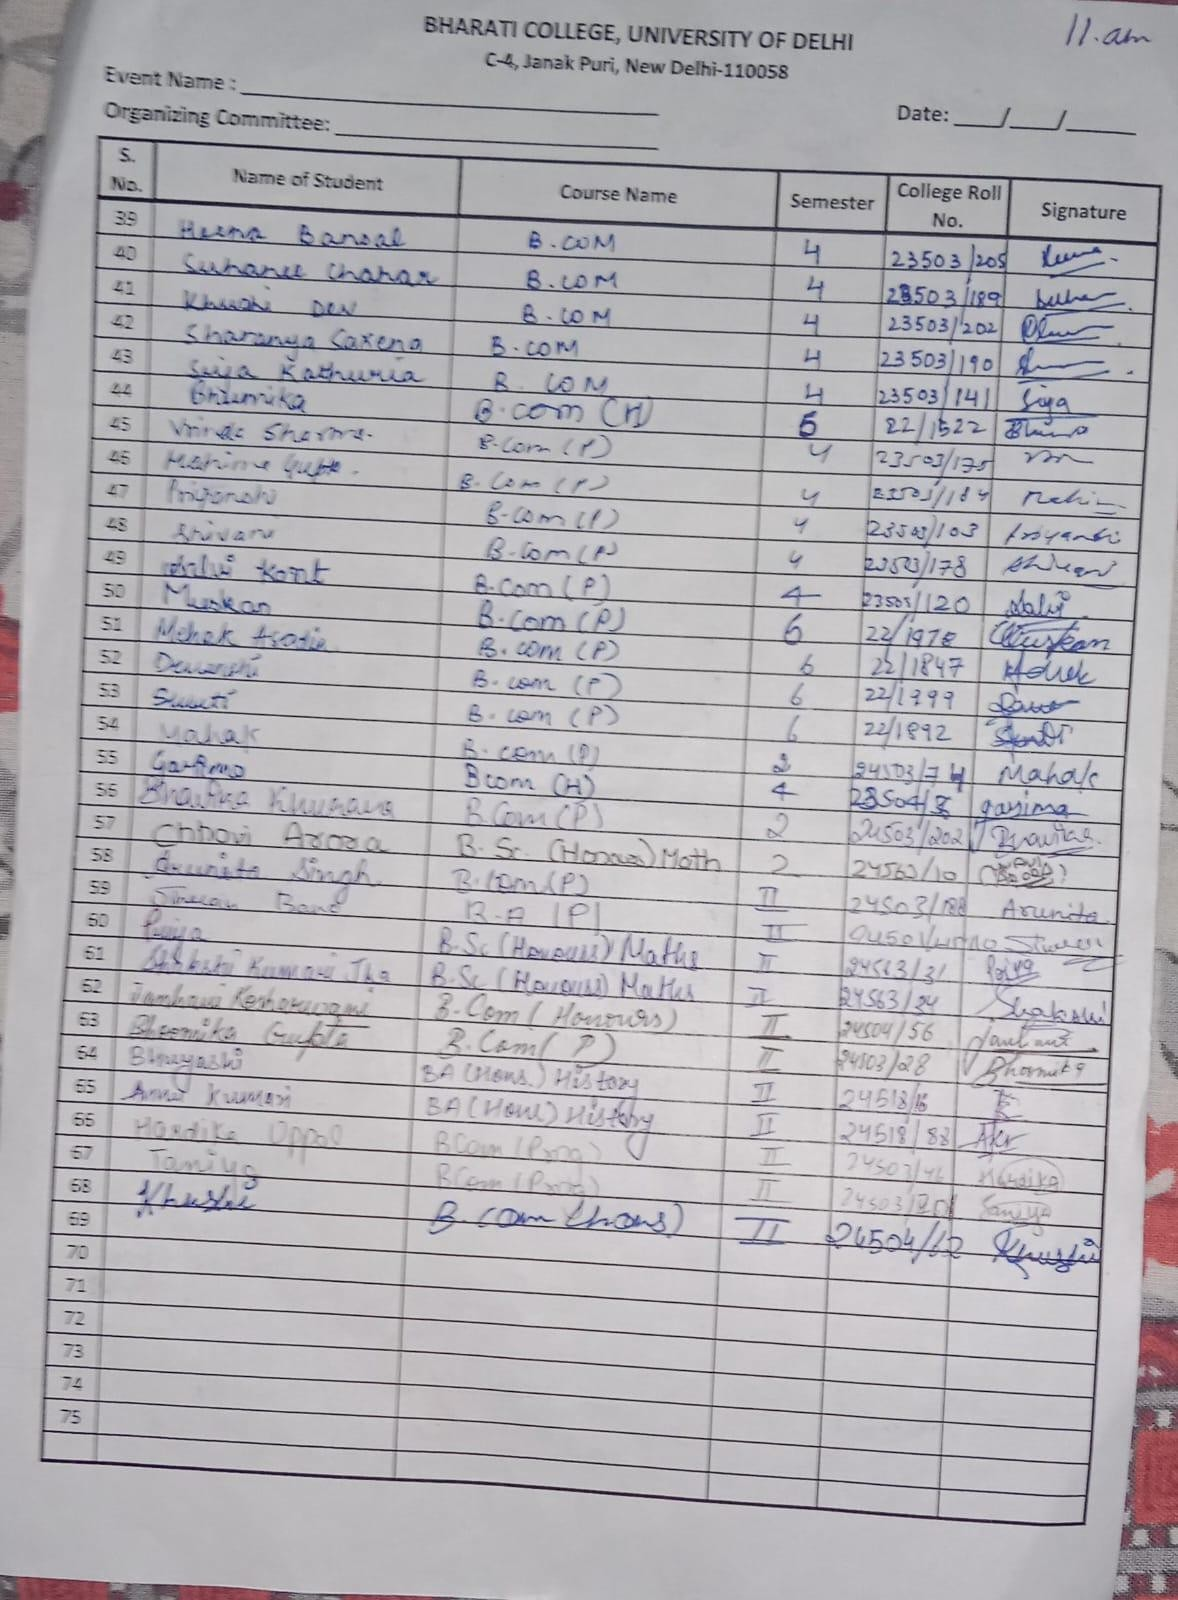 11.am
BHARATI COLLEGE, UNIVERSITY OF DELHI
C-4, Janak Puri, New Delhi-110058
Event Name :
Organizing Committee:
Date: ___/___/_____
S. No. Name of Student Course Name Semester College Roll No. Signature
39 Heena Bansal B.COM 4 23503/205
40 Suhanee Chahar B.COM 4 23503/189
41 Khushi Dev B.COM 4 23503/202
42 Sharanya Saxena B.COM 4 23503/190
43 Siya Kathuria B.COM 4 23503/141 Siya
44 Bhumika B.com (H) 22/1522
45 Vrinda Sharma. B.Com (P) 4 23503/175
46 Mahima Gupta. B.Com (P) 4 Mahima
47 Priyanshi B.Com (P) 4 23503/103 Priyanshi
48 Shivani B.Com (P) 4 23503/178 Shivani
49 B.Com (P) 4 23503/120
50 Muskan B.Com (P) 6 22/1978 Muskan
51 Mehak B.com (P) 6 22/1847
52 Devanshi B.com (P) 6 22/1999
53 B.com (P) 6 22/1892
54 Mahak B.com (P) 2 24503/74 Mahak
55 Garima Bcom (H) 4 23504/8 garima
56 Bhavika Khurana B.Com (P) 2 24503/202 Bhavika
57 Chhavi Arora B.Sc. (Honors) Math 2 24563/10
58 Arunita Singh B.Com (P) II 24503/188 Arunita
59 Simran Bano B.A (P) II
60 B.Sc (Honours) Maths II 24563/31
61 Sakshi Kumari Jha B.Sc (Honours) Maths II 24563/24
62 B.Com (Honours) II 24504/56
63 Bhoomika Gupta B.Com (P) II 24503/28
64 BA (Hons.) History II 24518/16
65 Kumari BA (Hons) History II 24518/88
66 Hardika Uppal BCom (Prog) II 24503/46 Hardika
67 Taniya BCom (Prog) II Taniya
68 Khushi B.Com (hons) II 24504/62 Khushi
69
70
71
72
73
74
75